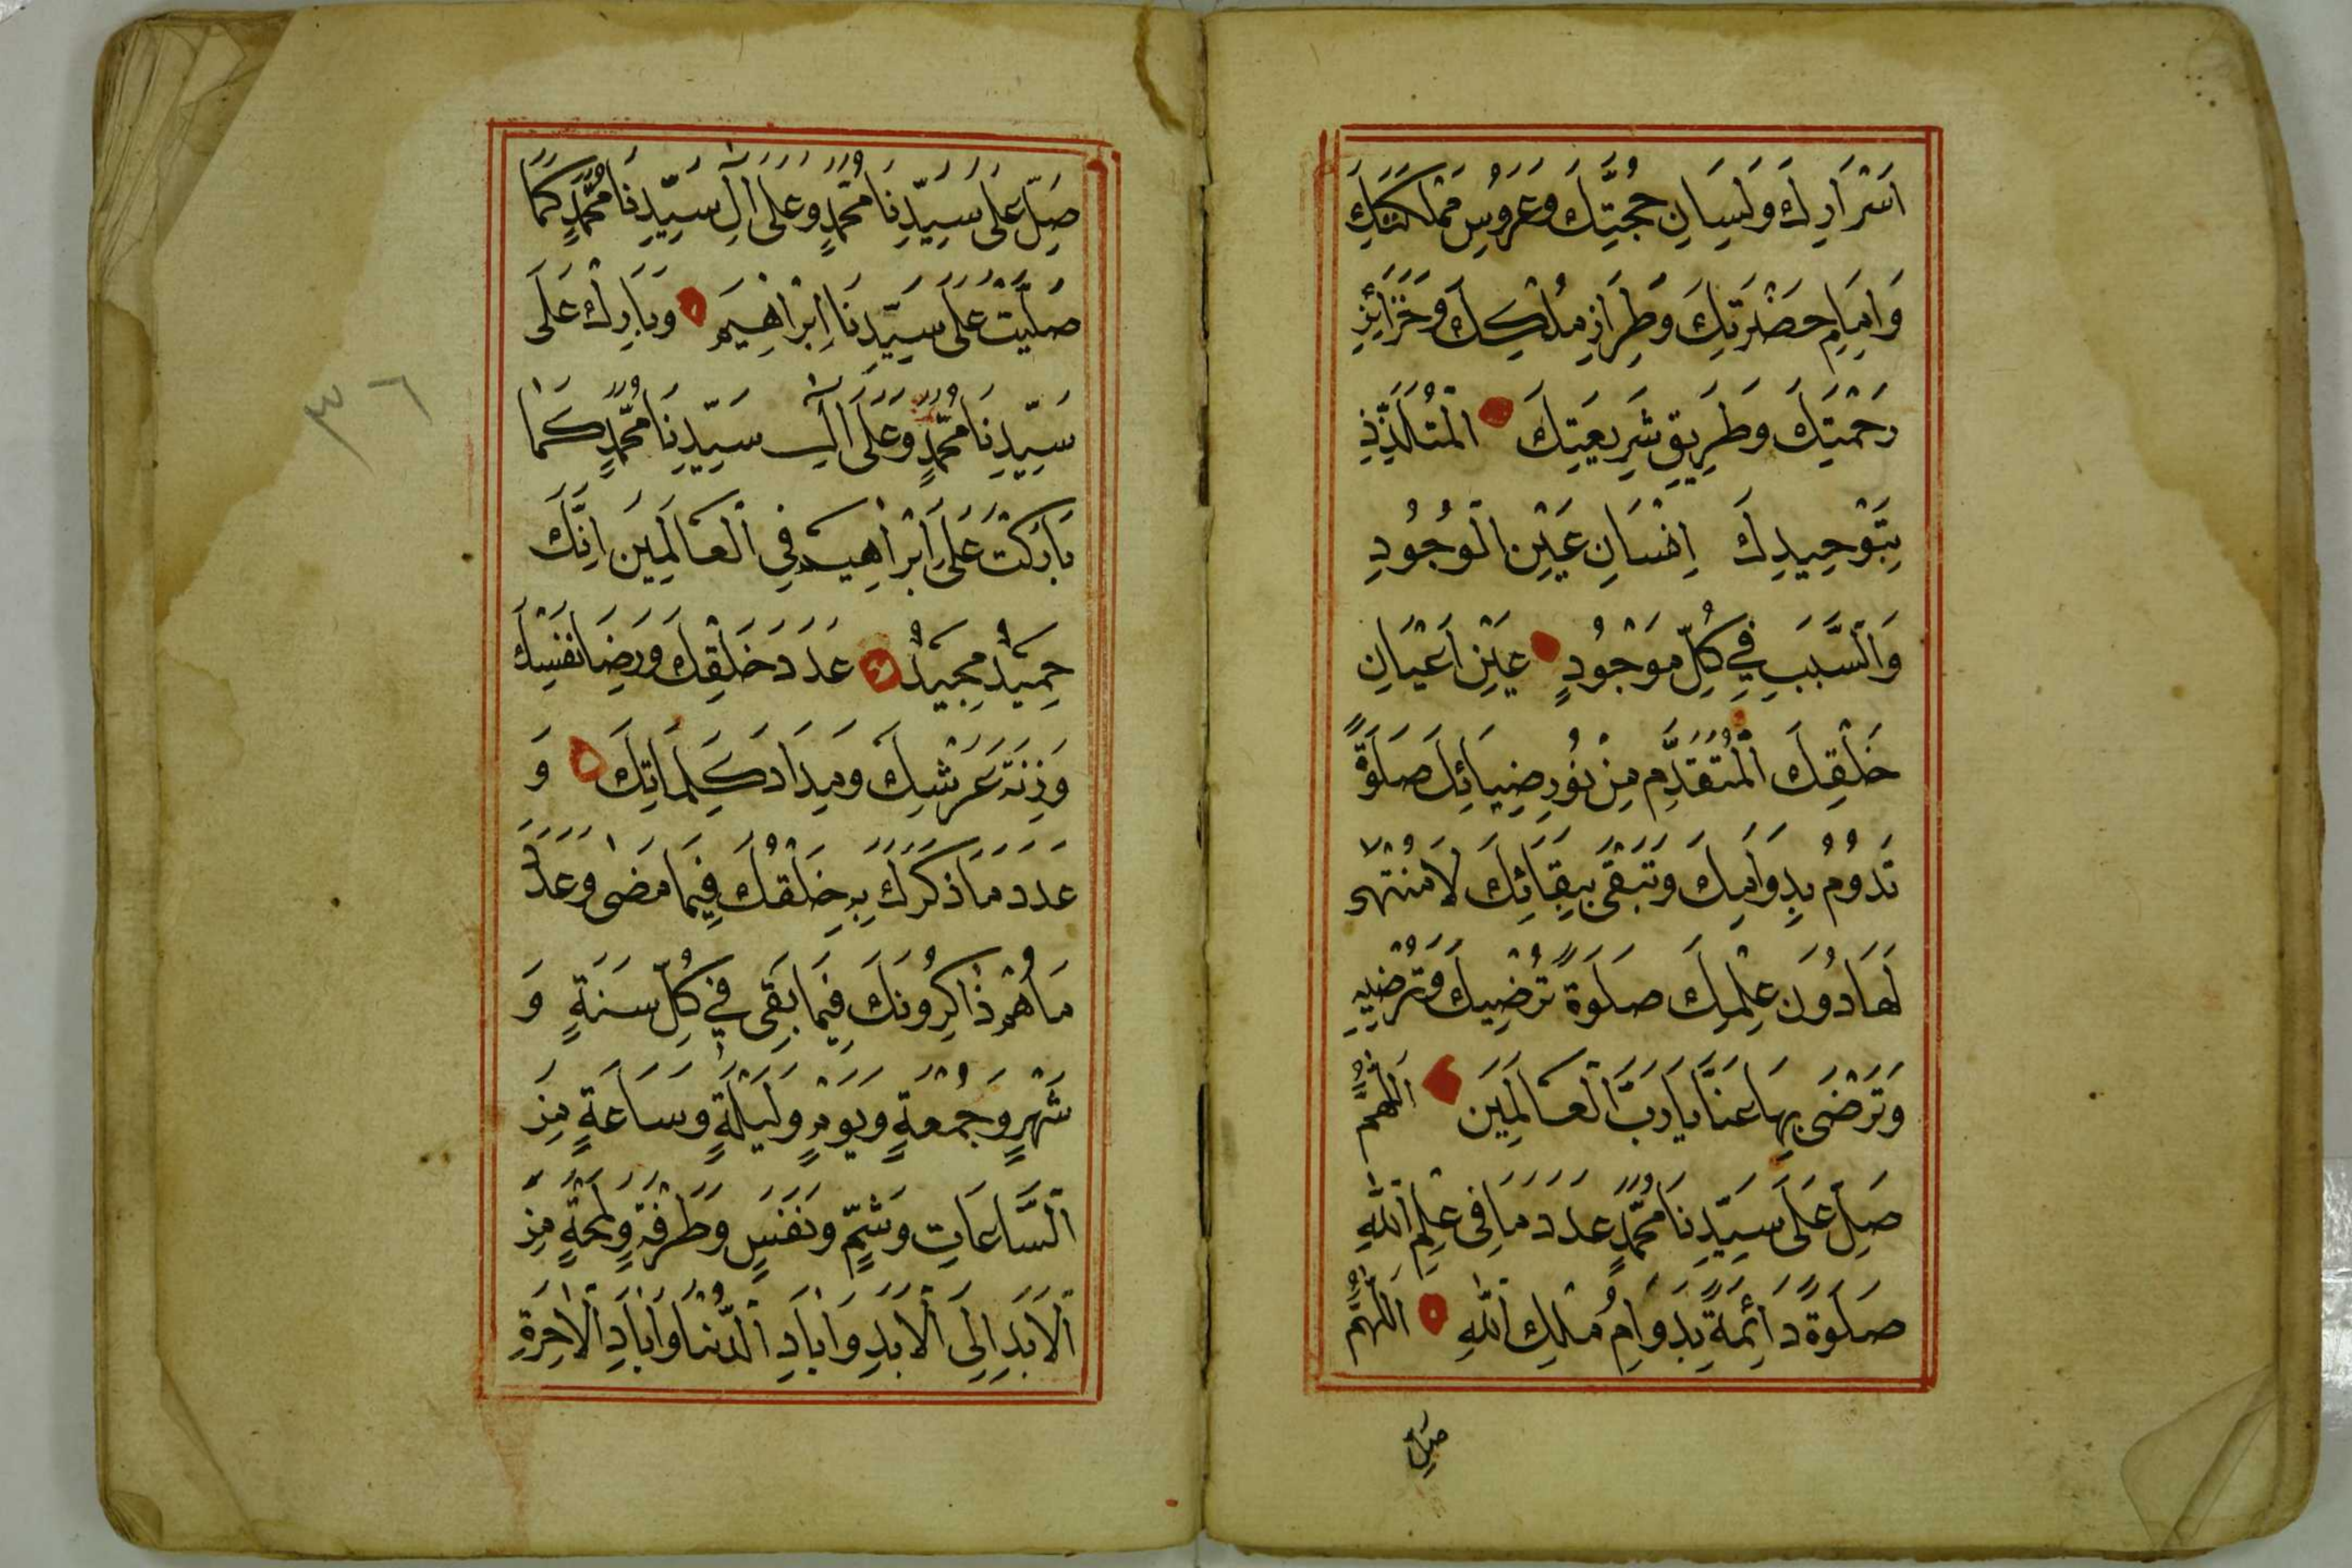 اَسْرَارِكَ وَلِسَانِ حُجَّتِكَ وَعَرُوسِ مَمْلَكَتِكَ
وَاِمَامِ حَضْرَتِكَ وَطِرَازِ مُلْكِكَ وَخَزَائِنِ
رَحْمَتِكَ وَطَرِيقِ شَرِيعَتِكَ الْمُتَلَذِّذِ
بِتَوْحِيدِكَ اِنْسَانِ عَيْنِ الْوُجُودِ
وَالسَّبَبِ فِي كُلِّ مَوْجُودٍ عَيْنِ اَعْيَانِ
خَلْقِكَ الْمُتَقَدِّمِ مِنْ نُورِ ضِيَائِكَ صَلَوةً
تَدُومُ بِدَوَامِكَ وَتَبْقَى بِبَقَائِكَ لَا مُنْتَهٰى
لَهَا دُونَ عِلْمِكَ صَلَوةً تُرْضِيكَ وَتُرْضِيهِ
وَتَرْضَى بِهَا عَنَّا يَا رَبَّ الْعَالَمِينَ اَللّٰهُمَّ
صَلِّ عَلَى سَيِّدِنَا مُحَمَّدٍ عَدَدَ مَا فِى عِلْمِ اللّٰهِ
صَلَوةً دَائِمَةً بِدَوَامِ مُلْكِ اللّٰهِ اَللّٰهُمَّ
صَلِّ
صَلِّ عَلَى سَيِّدِنَا مُحَمَّدٍ وَعَلَى اٰلِ سَيِّدِنَا مُحَمَّدٍ كَمَا
صَلَّيْتَ عَلَى سَيِّدِنَا اِبْرَاهِيمَ وَبَارِكْ عَلَى
سَيِّدِنَا مُحَمَّدٍ وَعَلَى اٰلِ سَيِّدِنَا مُحَمَّدٍ كَمَا
بَارَكْتَ عَلَى اِبْرَاهِيمَ فِي الْعَالَمِينَ اِنَّكَ
حَمِيدٌ مَجِيدٌ عَدَدَ خَلْقِكَ وَرِضَا نَفْسِكَ
وَزِنَةَ عَرْشِكَ وَمِدَادَ كَلِمَاتِكَ وَ
عَدَدَ مَا ذَكَرَكَ بِهِ خَلْقُكَ فِيمَا مَضٰى وَعَدَدَ
مَا هُمْ ذَاكِرُونَكَ فِيمَا بَقِيَ فِي كُلِّ سَنَةٍ وَ
شَهْرٍ وَجُمْعَةٍ وَيَوْمٍ وَلَيْلَةٍ وَسَاعَةٍ مِنَ
السَّاعَاتِ وَشَمٍّ وَنَفَسٍ وَطَرْفَةٍ وَلَمْحَةٍ مِنَ
الْاَبَدِ اِلَى الْاَبَدِ وَاٰبَادِ الدُّنْيَا وَاٰبَادِ الْاٰخِرَةِ
٣٦